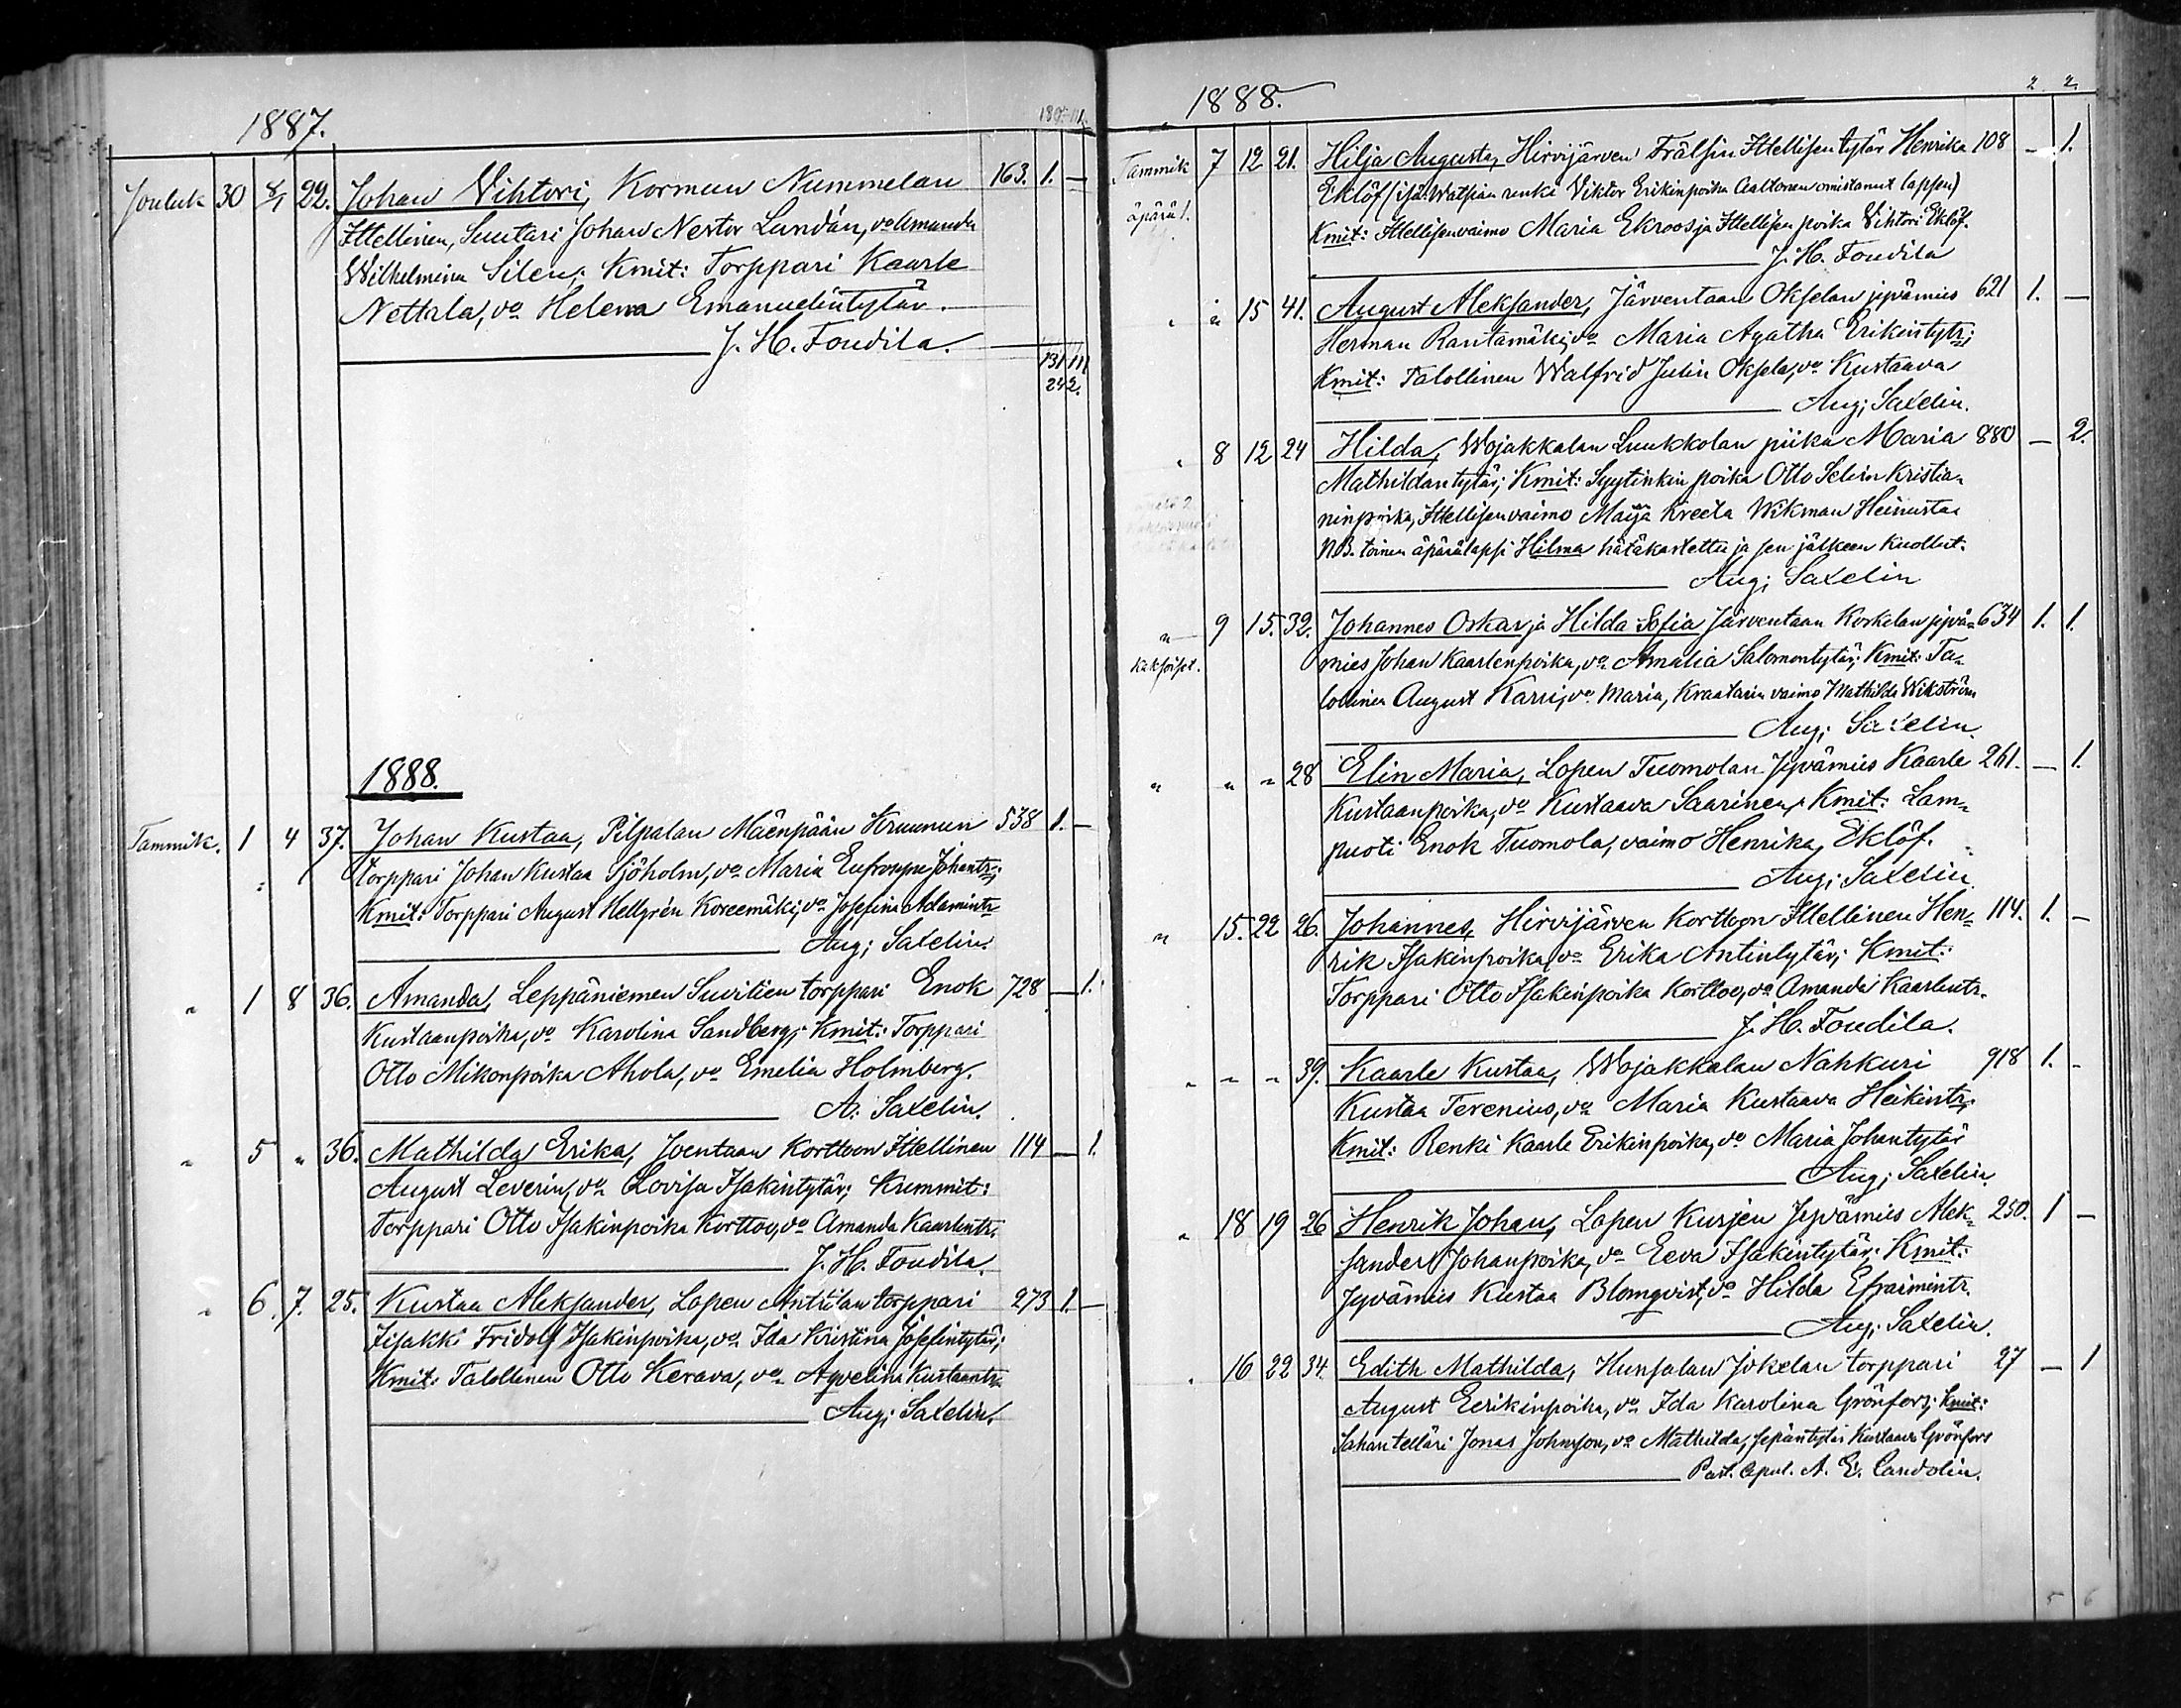 1887.
Jouluk 30 8/1 22. Johan Vihtori, Kormun Nummelan 163. 1. —
Ittellinen, Suutari Johan Nestor Lundán, vo Amanda
Wilhelmina Silen; Kmit: Torppari Kaarle
Nettala, vo Helena Emanuelintytär.
J. H. Foudila.
131 111
24 2.
1888.
Tammik. 1 4 37. Johan Kustaa, Pilpalan Mäenpään Kruunun 538 1. —
torppari Johan Kustaa Sjöholm, vo Maria Eufrosyne Johantr;
Kmit: Torppari August Hellgrén Koreemäki, vo Josefina Adamintr
Aug; Saxelin.
" 1 8 36. Amanda, Leppäniemen Suvilien torppari Enok 728 — 1.
Kustaanpoika, vo Karolina Sandberg; Kmit: Torppari
Otto Mikonpoika Ahola, vo Emelia Holmberg.
A. Saxelin.
" 5 " 36. Mathilda Erika, Joentaan Korttoon Ittellinen 114 — 1.
August Leverin, vo Lovisa Isakintytär; Kummit:
Torppari Otto Isakinpoika Korttoo, vo Amanda Kaarlentr.
J. H. Foudila.
" 6. 7. 25. Kustaa Aleksander, Lopen Anttilan torppari 273 1. —
Iisakki Fridolf Isakinpoika, vo Ida Kristina Josefintytär;
Kmit: Talollinen Otto Kerava, vo Aqvelina Kustaantr
Aug; Saxelin.
1888.
2. 2.
Tammik 7 12 21. Hilja Augusta, Hirvijärven Frälsin Ittellisen tytär Henrika 108 — 1.
äpärä 1. Eklöf (isä: Watsian renki Viktor Erikinpoika Aaltonen omistanut lapsen)
Kmit: Ittellisenvaimo Maria Ekroos ja Ittellisen poika Vihtori Eklöf.
J. H. Foudila
" " 15 41. August Aleksander, Järventaan Okselan jyvämies 621 1. —
Herman Rantamäki, vo Maria Agatha Erikintytr;
Kmit: Talollinen Walfrid Julin Oksela, vo Kustaava
Aug; Saxelin.
" 8 12 24 Hilda, Wojakkalan Luukkolan piika Maria 880 — 2.
Mathildan tytär; Kmit: Syytinkin poika Otto Selim Kristia-
ninpoika, Ittellisenvaimo Maija Kreeta Wikman Heinustaa
NB. toinen äpärälapsi Hilma hätäkastettu ja sen jälkeen kuollut.
Aug; Saxelin
" 9 15. 32. Johannes Oskar ja Hilda Sofia Järventaan Korkelan jyvä- 634 1. 1.
kaksoiset. mies Johan Kaarlenpoika, vo Amalia Salomontytär; Kmit: Ta-
lollinen August Karri, vo Maria, Kraatarin vaimo Mathilda Wikström
Aug; Saxelin.
" " " 28 Elin Maria, Lopen Tuomolan Jyvämies Kaarle 261. — 1.
Kustaanpoika, vo Kustaava Saarinen; Kmit: Lam-
puoti Enok Tuomola, vaimo Henrika Eklöf.
Aug; Saxelin
" 15. 22 26. Johannes, Hirvijärven Korttoon Ittellinen Hen- 114. 1. —
rik Isakinpoika, vo Erika Antintytär; Kmit:
Torppari Otto Isakinpoika Korttoo, vo Amanda Kaarlentr.
J. H. Foudila.
" " " 39. Kaarle Kustaa, Wojakkalan Nahkuri 918 1. -
Kustaa Terenius, vo Maria Kustaava Heikintr;
Kmit: Renki Kaarle Erikinpoika, vo Maria Johantytär
Aug; Saxelin.
" 18 19 26 Henrik Johan, Lopen Kurjen Jyvämies Alek- 250. 1 —
sander Johanpoika, vo Eeva Isakintytär; Kmit:
Jyvämies Kustaa Blomqvist, vo Hilda Efraimintr.
Aug; Saxelin.
" 16 22 34. Edith Mathilda, Hunsalan Jokelan torppari 27 — 1
August Eerikinpoika, vo Ida Karolina Grönfors; Kmit:
Sahantelläri Jonas Johnsson, vo Mathilda, sepäntytär Kustaava Grönfors
Past. apul. A. E. Candolin.
5 6